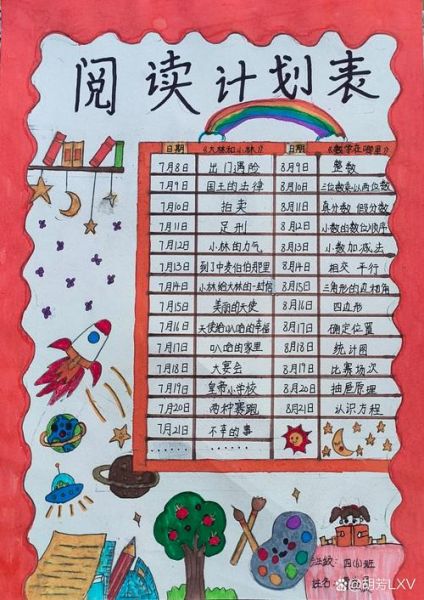 阅读计划表
日期 《大林和小林》 日期 《数学在哪里》
7月8日 出门遇险 8月9日 整数
7月9日 国王的法律 8月10日 三位数乘以两位数
7月10日 拍卖 8月11日 真分数 假分数
7月11日 足刑 8月12日 小数的数位顺序
7月12日 小林的力气 8月13日 小数加减法
7月13日 到了中麦伯伯那里 8月14日 相交 平行
7月14日 小林给大林的一封信 8月15日 三角形的边和角
7月15日 美丽的天使 8月16日 四边形
7月16日 天使给叭哈的幸福 8月17日 确定位置
7月17日 叭哈的家里 8月18日 统计图
7月18日 大宴会 8月19日 比赛场次
7月19日 皇帝小学校 8月20日 抽屉原理
7月20日 两种赛跑 8月21日 认识方程
7月21日 不幸的事
...... ......
班级:四(4)班
姓名:
@胡芳LXV